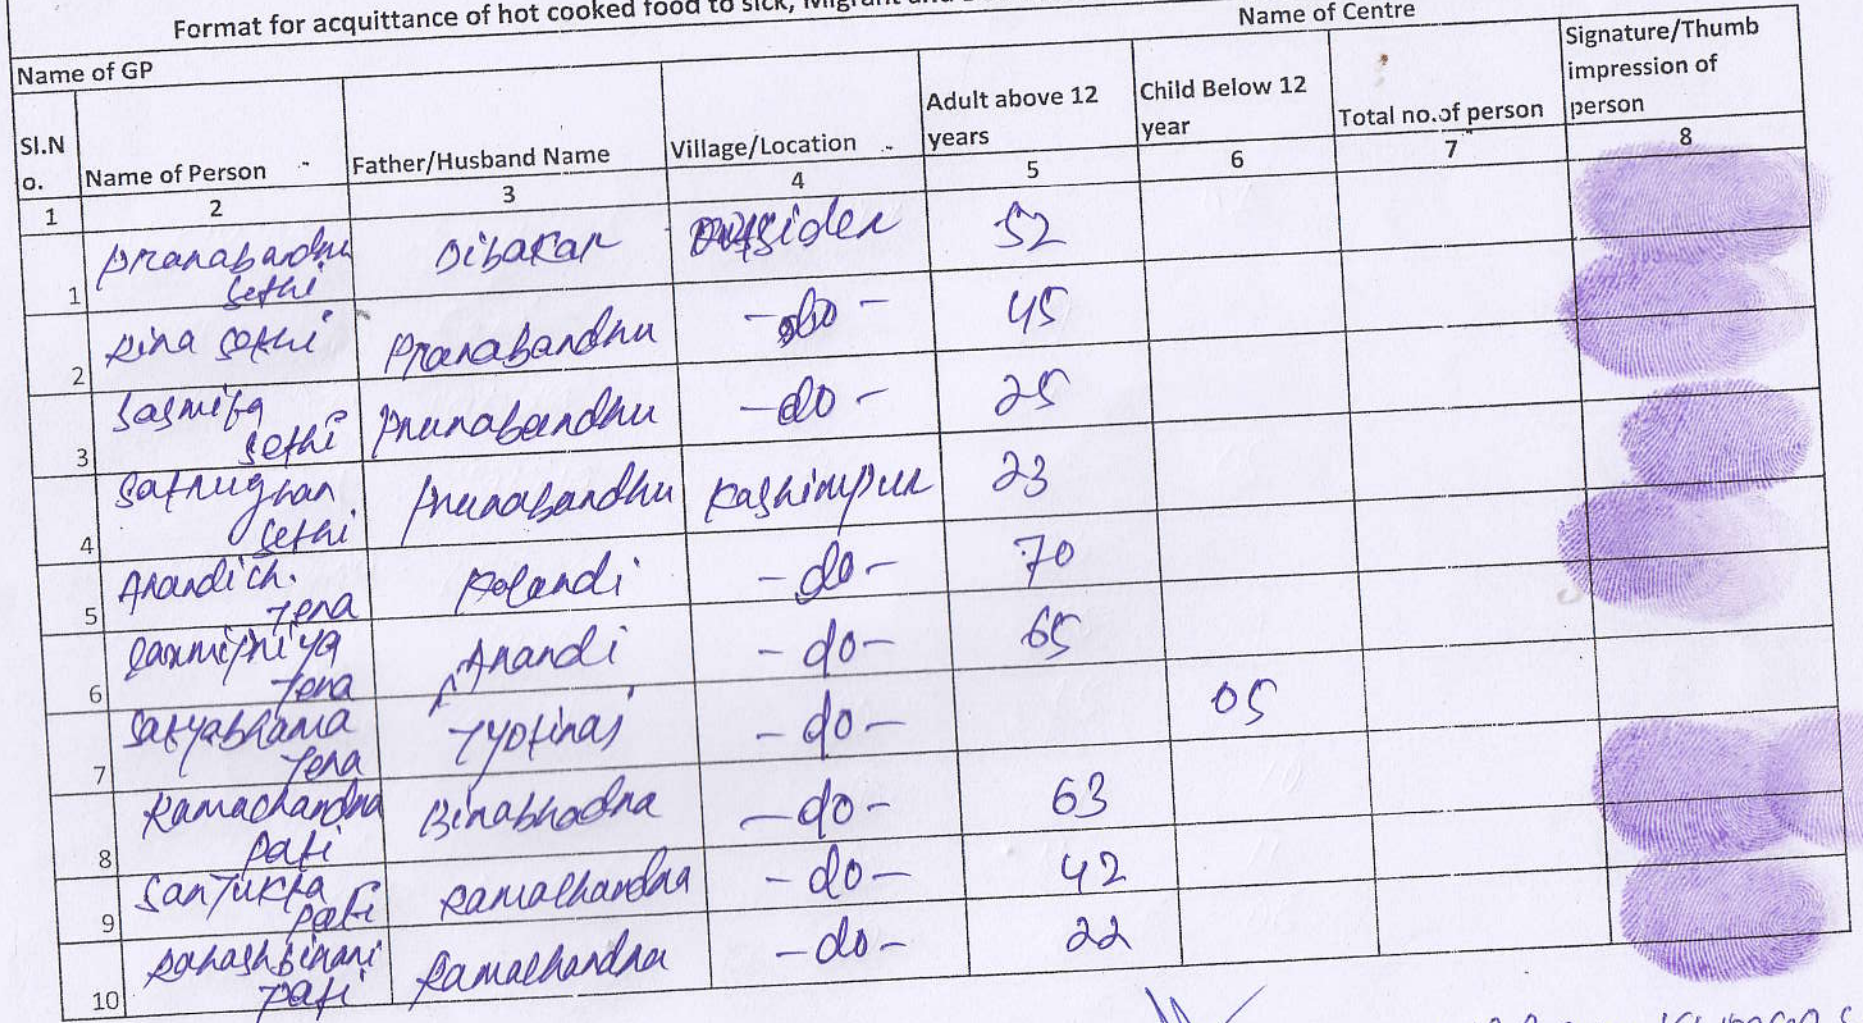 Format for acquittance of hot cooked food to sick, Migrant and
Name of GP Name of Centre
Sl.N
o. Name of Person Father/Husband Name Village/Location Adult above 12
years Child Below 12
year Total no.of person Signature/Thumb
impression of
person
1 2 3 4 5 6 7 8
1 Pranabandhu
Sethi Dibakar Outsider 52
2 Rina Sethi Pranabandhu -do- 45
3 Sasmita
Sethi Pranabandhu -do- 25
4 Satrughan
Sethi Pranabandhu Kashimpur 23
5 Anandi ch.
Jena Kelandi -do- 70
6 Laxmipriya
Jena Anandi -do- 65
7 Satyabhama
Jena Jyotinas -do- 05
8 Ramachandra
Pati Birabhadra -do- 63
9 Sanjukta
Pati Ramachandra -do- 42
10 Rahashbihari
Pati Ramachandra -do- 22